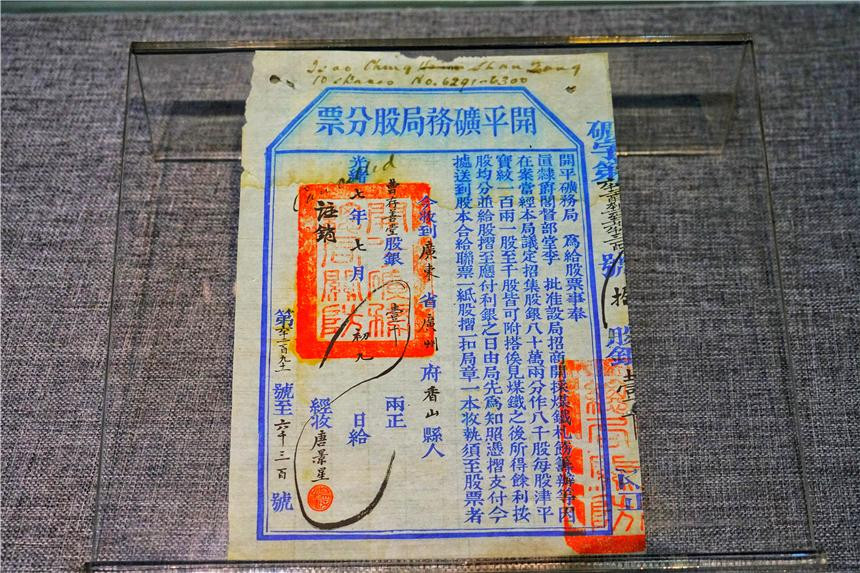 10 shares No. 6291-6300
開平礦務局股分票
開平礦務局 爲給股票事奉
直隸爵閣督部堂李 批准設局招商開採煤鐵札飭籌辦等因
在案當經本局議定招集股銀八十萬兩分作八千股每股津平
寶紋一百兩一股至千股皆可附搭俟見煤鐵之後所得餘利按
股均分並給股摺至應付利銀之日由局先爲知照憑摺支付今
據送到股本合給聯票一紙股摺一扣局章一本收執須至股票者
今收到廣東省廣州府香山縣人
曹存善堂股銀壹千兩正
光緒七年七月初九日給
註銷
經收唐景星
第六千二百九十一號至六千三百號